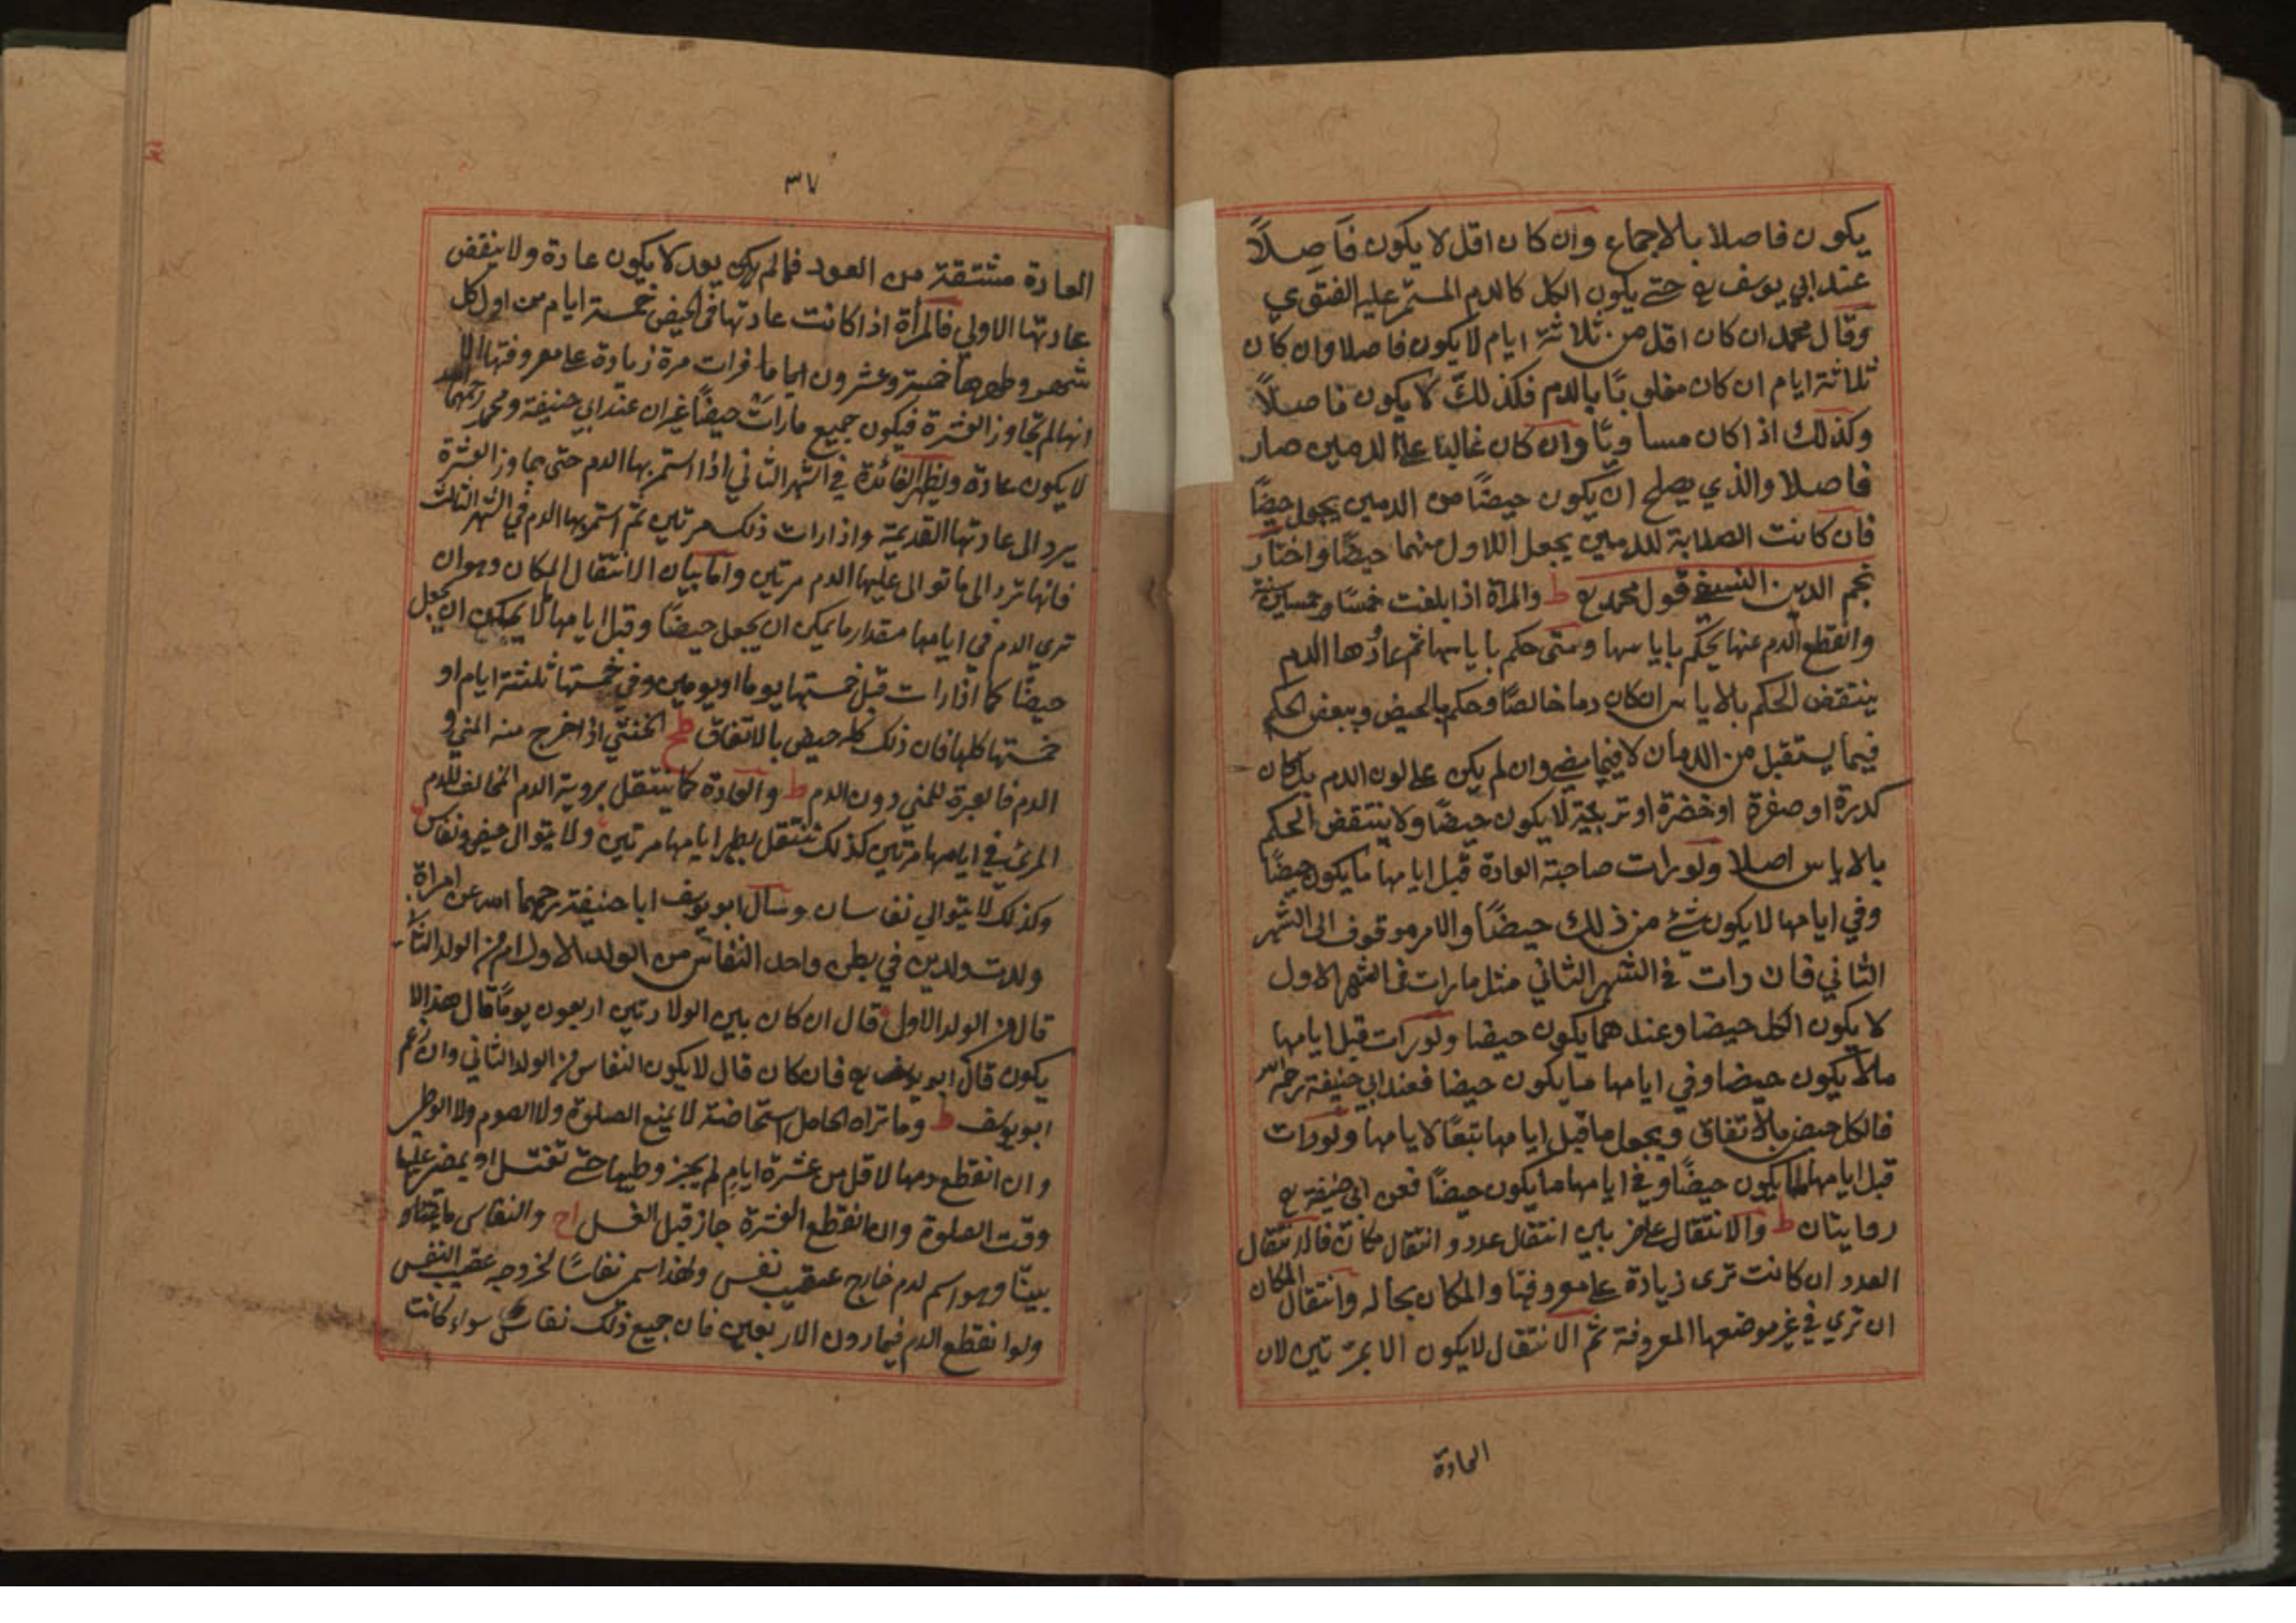 يكون فاصلا بالاجماع وان كان اقل لا يكون فاصلاً
عند ابي يوسف رح حتے يكون الكل كالدم المستمر عليه الفتوي
وقال محمد ان كان اقل من ثلاثة ايام لا يكون فاصلا وان كان
ثلاثة ايام ان كان مغلوبًا بالدم فكذلك لا يكون فاصلاً
وكذلك اذا كان مساويًا وان كان غالبا علے الدمين صار
فاصلا والذي يصلح ان يكون حيضًا من الدمين يجعل حيضًا
فان كانت الصلابة للدمين يجعل الاول منهما حيضًا واختار
نجم الدين النسفي قول محمد رح ط والمرأة اذا بلغت خمسًا وخمسين سنة
وانقطع الدم عنها يحكم باياسها ومتى حكم باياسها ثم عاودها الدم
ينتقض الحكم بالاياس ان كان دما خالصًا وحكم بالحيض وببعض الحكم
فيما يستقبل من الدمان لا فيما مضے وان لم يكن علے لون الدم بل كان
كدرة او صفرة او خضرة او تربية لا يكون حيضًا ولا ينتقض الحكم
بالاياس اصلا ولو رات صاحبة العادة قبل ايامها ما يكون حيضًا
وفي ايامها لا يكون شئ من ذلك حيضًا والامر موقوف الى الشهر
الثاني فان رات في الشهر الثاني مثل ما رات في الشهر الاول
لا يكون الكل حيضا وعندهما يكون حيضا ولو رات قبل ايامها
مالا يكون حيضا وفي ايامها ما يكون حيضا فعند ابي حنيفة رحمه الله
فالكل حيض بالاتفاق ويجعل ما قبل ايامها تبعًا لايامها ولو رات
قبل ايامها ما يكون حيضًا وفي ايامها ما يكون حيضًا فعن ابي حنيفة رح
روايتان ط والانتقال علے ضربين انتقال عدد وانتقال مكان فالانتقال
العدد ان كانت ترى زيادة علے معروفتها والمكان بحاله وانتقال المكان
ان تري في غير موضعها المعروفة ثم الانتقال لا يكون الا بمرتين لان
العادة
٣٧
العادة مشتقة من العود فمالم يعد لا يكون عادة ولا ينقض
عادتها الاولي فالمرأة اذا كانت عادتها في الحيض خمسة ايام من اول كل
شهر وطهرها خمسة وعشرون اياما فرات مرة زيادة علے معروفتها الا
انها لم تجاوز العشرة فيكون جميع مارات حيضًا غير ان عند ابي حنيفة ومحمد رحمهما الله
لا يكون عادة ويظهر الفائدة في الشهر الثاني اذا استمر بها الدم حتى جاوز العشرة
يرد الى عادتها القديمة واذا رات ذلك مرتين ثم استمر بها الدم في الشهر الثالث
فانها ترد الى ما توالى عليها الدم مرتين واما بيان الانتقال المكان وهو ان
تري الدم في ايامها مقدار ما يمكن ان يجعل حيضًا وقبل ايامها لا يمكن ان يجعل
حيضًا كما اذا رات قبل خمستها يوما او يومين وفي خمستها ثلثة ايام او
خمستها كلها فان ذلك كله حيض بالاتفاق طح الخنثي اذا خرج منه المني و
الدم فالعبرة للمني دون الدم ط والعادة كما ينتقل بروية الدم المخالف للدم
المرئي في ايامها مرتين كذلك تنتقل بطهر ايامها مرتين ولا يتوال حيض ونفاس
وكذلك لا يتوالي نفاسان وسال ابو يوسف ابا حنيفة رحمهما الله عن امراة
ولدت ولدين في بطن واحد النفاس من الولد الاول ام من الولد الثاني
قال من الولد الاول قال ان كان بين الولادتين اربعون يومًا قال هذا لا
يكون قال ابو يوسف رح فان كان قال لا يكون النفاس من الولد الثاني وان زعم
ابو يوسف ط وما تراه الحامل استحاضة لا يمنع الصلوة ولا الصوم ولا الوطى
وان انقطع دمها لاقل من عشرة ايام لم يجز وطيها حتے تغتسل او يمضى عليها
وقت الصلوة وان انقطع العشرة جاز قبل الغسل اح والنفاس
بينًا وهو اسم لدم خارج عقيب نفس ولهذا سمى نفاسًا لخروجه عقيب النفس
ولو انقطع الدم فيما دون الاربعين فان جميع ذلك نفاس سواء كانت